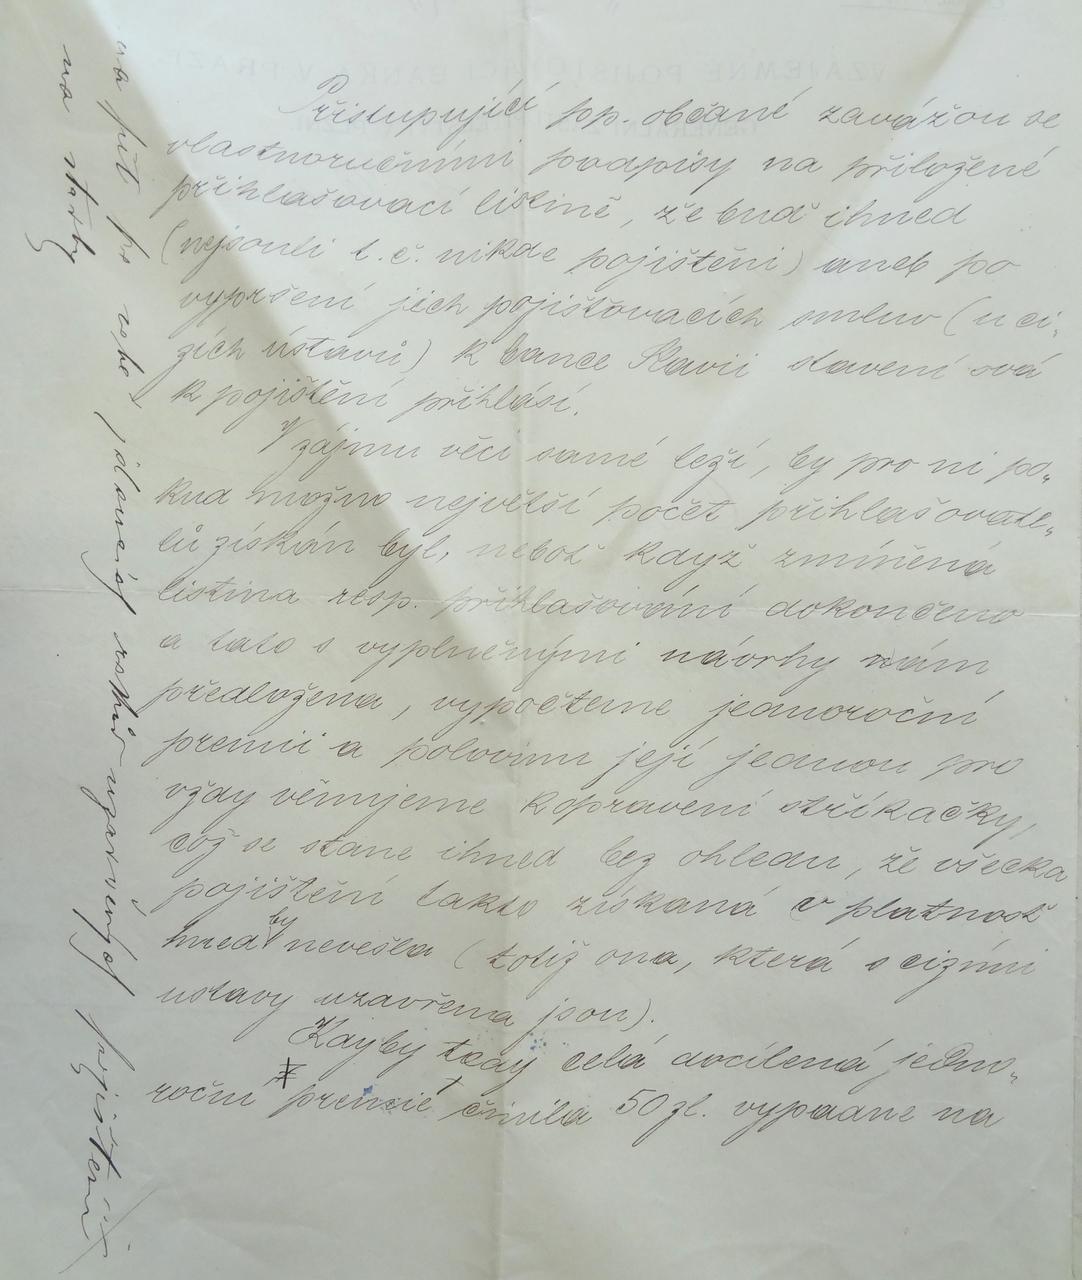 Přistupující pp. občané zavážou se
vlastnoručními podpisy na přiložené
přihlašovací listině, že buď ihned
(nejsouli t. č. nikde pojištěni) aneb po
vypršení jich pojišťovacích smluv (u ci„
zích ústavů) k bance Slavii stavení svá
k pojištění přihlásí.
V zájmu věci samé leží, by pro ni po„
kud možno největší počet přihlašovate„
lů získán byl, neboť když zmíněná
listina resp. přihlašování dokončeno
a tato s vyplněnými návrhy nám
předložena, vypočteme jednoroční
premii a polovinu její jednou pro
vždy věnujeme k opravení stříkačky,
což se stane ihned bez ohledu, že všecka
pojištění takto získaná v platnosť
hned by nevešla (totiž ona, která s cizími
ustavy uzavřena jsou).
Kdyby tedy celá docílená jedno„
roční * premie činila 50 zl. vypadne na
na pět po sobě jdoucích roků uzavřených pojištění
na stavby
VZÁJEMNĚ POJIŠŤUJÍCÍ BANKA V PRAZE